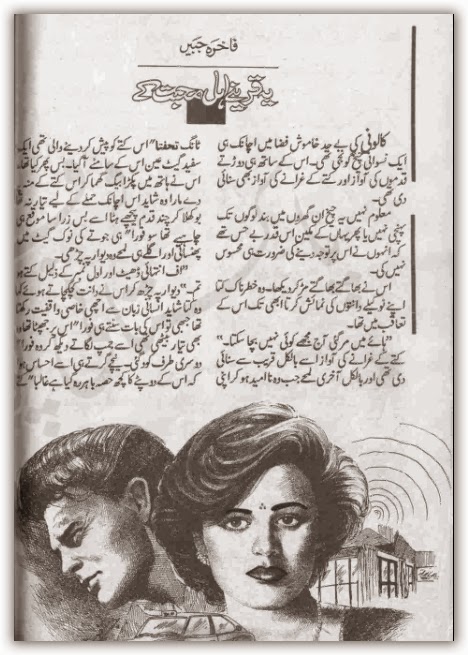 فاخرہ جبیں
یہ قرینے اہل محبت کے
کالونی کی بے حد خاموش فضا میں اچانک ہی
ایک نسوانی چیخ گونجی تھی۔ اس کے ساتھ ہی دوڑتے
قدموں کی آواز اور کتے کے غرانے کی آواز بھی سنائی
دی گئی۔
معلوم نہیں یہ چیخ ان گھروں میں بند لوگوں تک
پہنچی نہیں یا پھر یہاں کے مکین اس قدر بے حس تھے
کہ انہوں نے اس پر توجہ دینے کی ضرورت ہی محسوس
نہیں کی۔
اس نے بھاگتے بھاگتے مڑ کر دیکھا۔ وہ خطرناک کتا
اپنے نوکیلے دانتوں کی نمائش کرتا ابھی تک اس کے
تعاقب میں تھا۔
"ہائے میں مر گئی آج مجھے کوئی نہیں بچا سکتا۔"
کتے کے غرانے کی آواز اسے بالکل قریب سے سنائی
دی تھی اور بالکل آخری لمحے جب وہ نا امید ہو کر اپنی
ٹانگ تحفتا" اس کتے کو پیش کر دینے والی تھی ایک
سفید گیٹ عین اس کے سامنے آ گیا۔ بس پھر کیا تھا
اس نے ہاتھ میں پکڑا بیگ گھما کر اس کتے کے منہ پر
دے مارا وہ شاید اس اچانک حملے کے لیے تیار نہ تھا
بوکھلا کر چند قدم پیچھے ہٹا اسے بس ذرا سا موقع ہی
چاہیے تھا سو فورا" ہی جوتے کی نوک گیٹ میں
پھنسائی اور اگلے ہی لمحے وہ دیوار پہ چڑھ گئی۔
"اف انتہائی ڈھیٹ اور اول نمبر کے ذلیل کتے ہو
تم۔" دیوار پہ چڑھ کر اس نے دانت کچکچاتے ہوئے کہا
وہ کتا شاید انسانی زبان سے اچھی خاصی واقفیت رکھتا
تھا جبھی تو اس کی بات سنتے ہی فورا" اس پر جھپٹا تھا وہ
بھی تیار بیٹھی تھی اسے جمپ لگاتے دیکھ کر وہ فورا"
دوسری طرف کود گئی۔ نیچے گرتے ہی اسے احساس ہوا
کہ اس کے دوپٹے کا کچھ حصہ باہر رہ گیا ہے غالبا" کتے